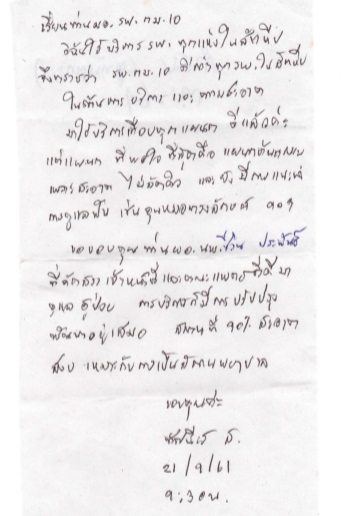 เรียนท่านผอ. รพ. กม.10
ดิฉันใช้บริการ รพ. ทุกแห่งในสัตหีบ
จึงทราบว่า รพ. กม.10 ดีกว่าทุก รพ. ในสัตหีบ
ในด้านการบริการ และความสะอาด
มาใช้บริการเกือบทุกแผนก ดีแล้วค่ะ
แต่แผนก ที่พอใจ ที่สุดคือ แผนกทันตกรรม
เพราะสะอาด ไม่ และ มีการแนะนำ
การดูแลฟัน เช่น คุณหมอ
ขอขอบคุณท่านผอ. นพ.
ที่ เจ้าหน้าที่ และคณะแพทย์ที่ดี มา
ดูแลผู้ป่วย การบริการก็มีการปรับปรุง
พัฒนาอยู่เสมอ สถานที่ สะอาด
สงบ เหมาะกับการเป็นสถานพยาบาล
ขอบคุณค่ะ
ส.
21/9/61
9:30น.